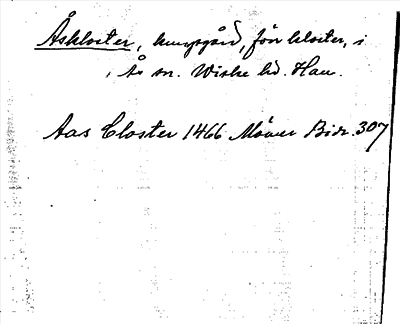 Åskloster, kungsgård, förr kloster, i
Ås sn. Wiske hd. Hall.
Aas Closter 1466 Bidr. 307